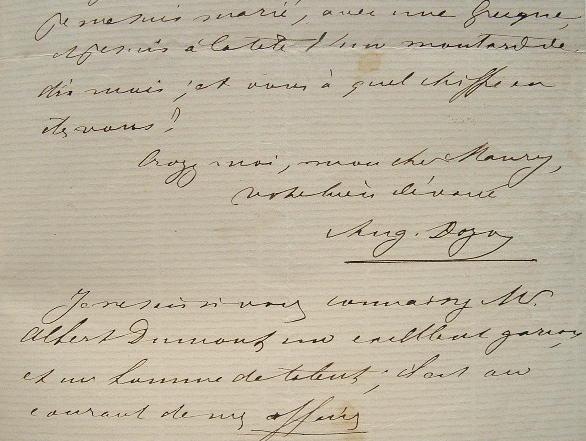 je me suis marié, avec une Grecque,
et je suis à la tête d'un moutard de
dix mois ; et vous à quel chiffre en
êtes vous ?
Croyez moi, mon cher Maury,
votre bien dévoué
Aug. Dozon
Je ne sais si vous connaissez Mr.
Albert Dumont, un excellent garçon,
et un homme de talent ; il est au
courant de mes affaires